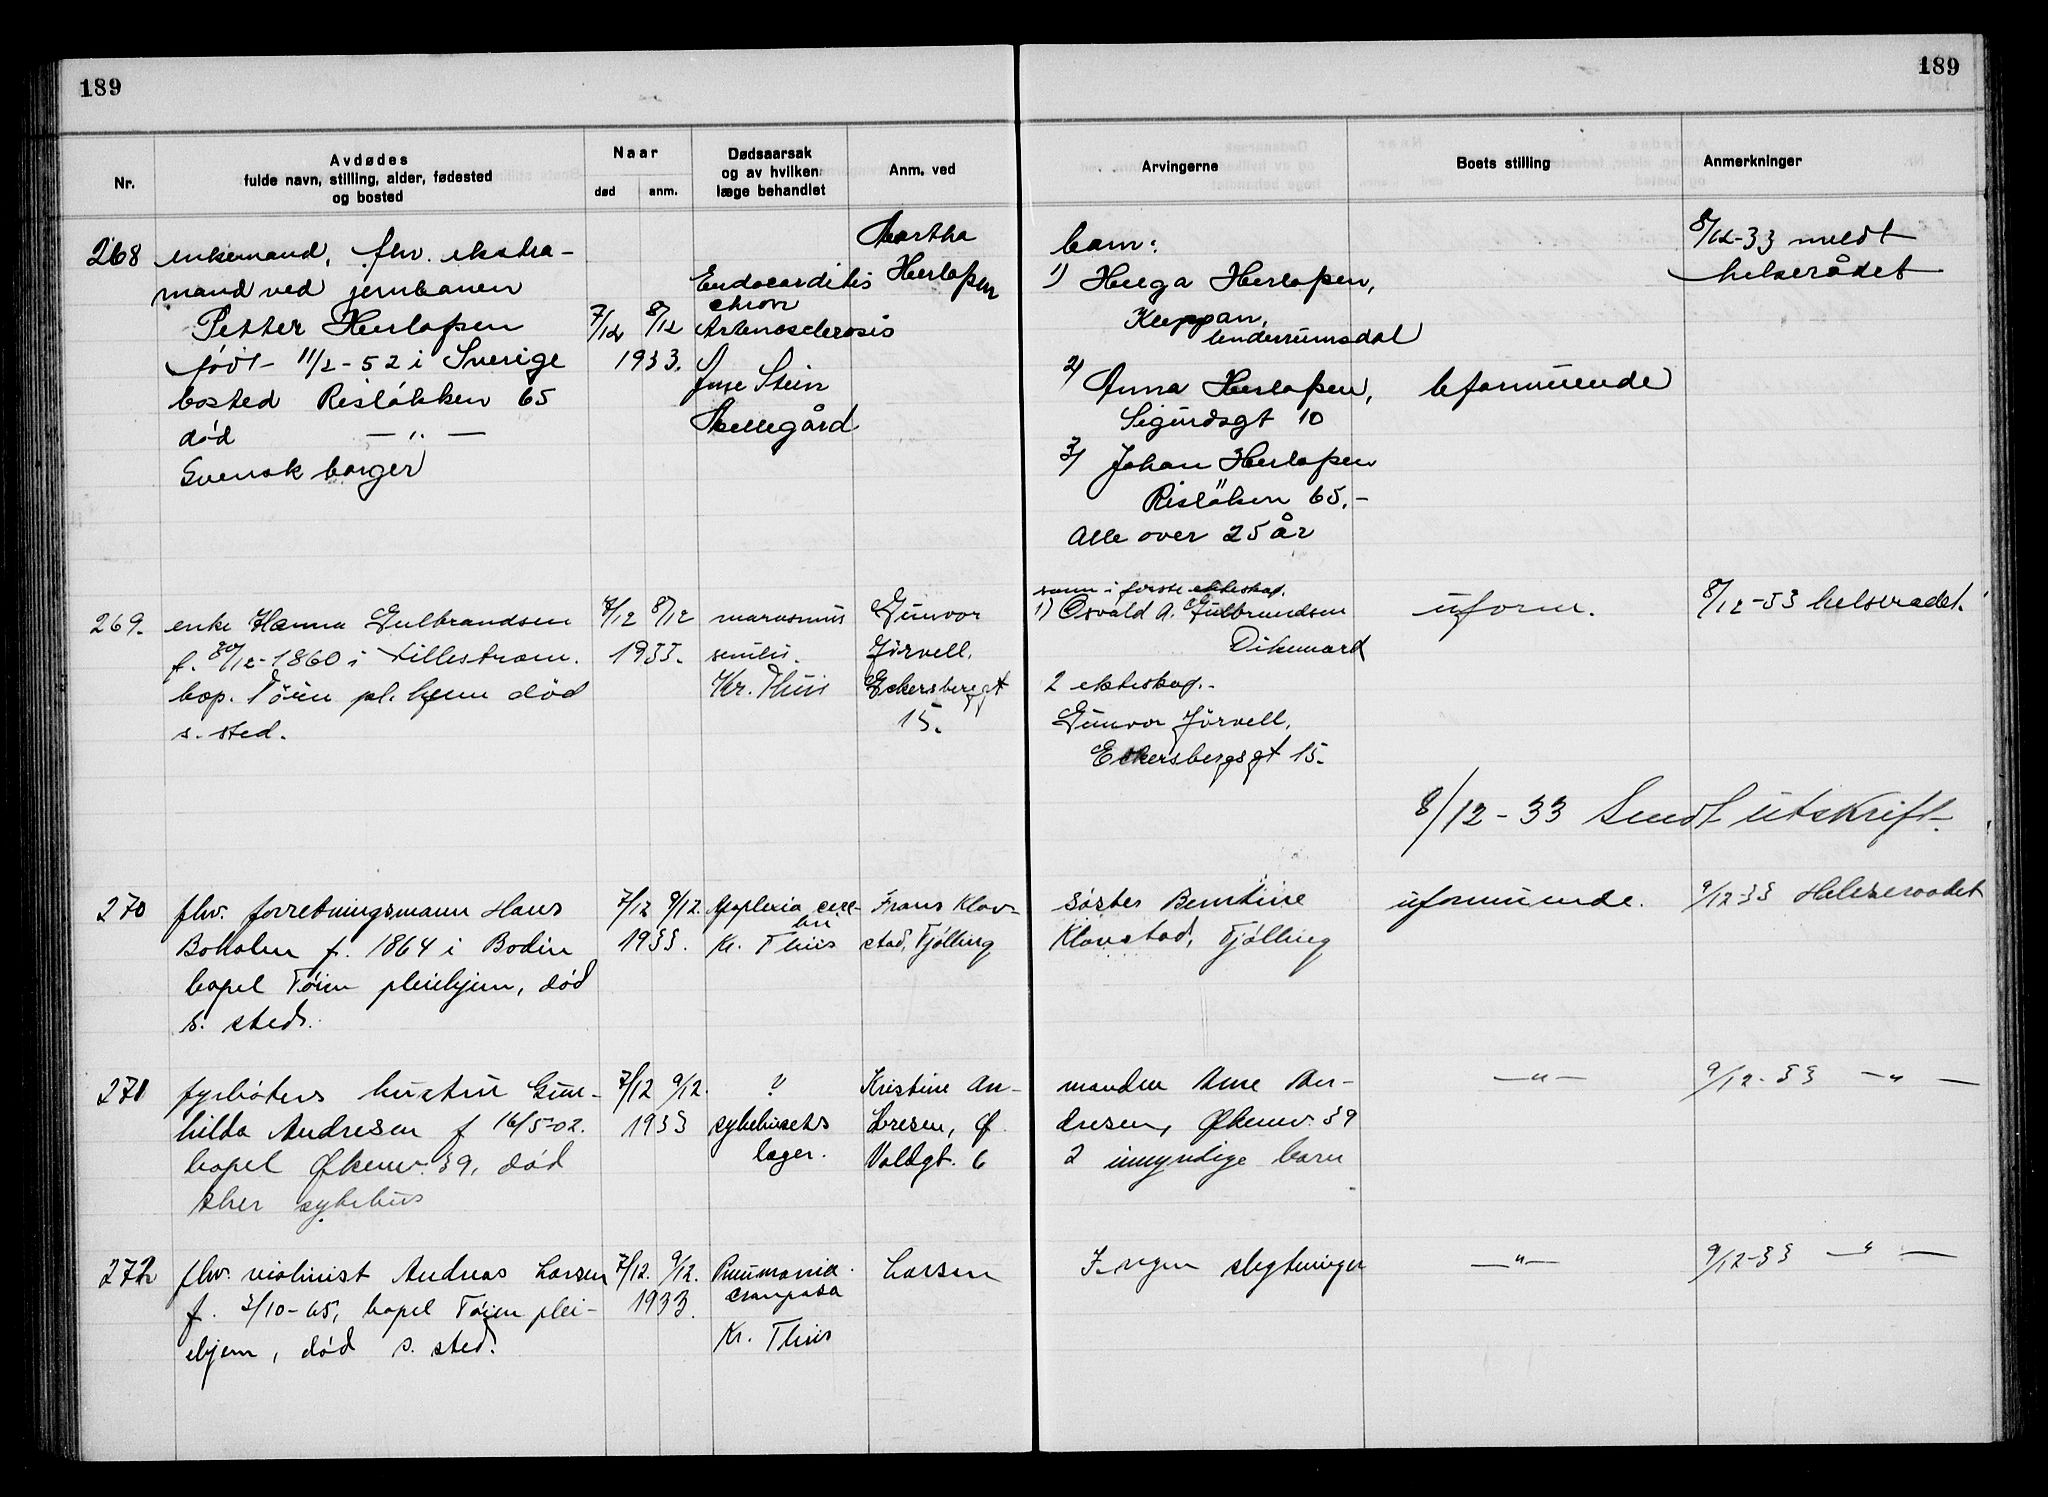 189
189
Nr.
Avdødes
fulde navn, stilling, alder, fødested
og bosted
Naar
død
anm.
Dødsaarsak
og av hvilken
læge behandlet
Anm. ved
Arvingerne
Boets stilling
Anmerkninger
268
enkemand, fhv. ekstra-
mand ved jernbanen
Petter Herlofsen
født 11/2-52 i Sverige
bosted Risløkken 65
død — " —
Svensk borger
7/12 8/12
1933.
Endocarditis
chron
Arteriosclerosis
Stein
Møllegård
Martha
Herlofsen
barn:
1) Helga Herlofsen,
Kleppan,
2) Anna Herlofsen,
Sigurdsgt 10
3) Johan Herlofsen
Risløken 65.-
Alle over 25 år
uformuende
8/12-33 meldt
helserådet
269.
enke Hanna Gulbrandsen
f. 30/12-1860 i Lillestrøm.
bop. Tøien pl. hjem død
s. sted.
7/12 8/12
1933.
marasmus
senilis.
Kr. Thiis
Gunvor
Jørvell.
Eckersbergsgt
15.
sønn i første ekteskap.
1) Osvald A. Gulbrandsen
Dikemark
2 ekteskap.-
Gunvor Jørvell,
Eckersbergsgt 15.
uform.
8/12-33 helseradet.
8/12-33 Sendt utskrift.
270
fhv. forretningsmann Hans
Boholm f. 1864 i Bodin
bopel Tøien pleiehjem, død
s. sted.
7/12 9/12.
1933.
Apoplexia cere-
bri
Kr. Thiis
Frans Klav-
stad, Tjølling
Søster Berntine
Klavstad, Tjølling
uformuende.
9/12-33 Helseraadet
271
fyrbøters hustru Gun-
hilda Andresen f 16/5-02.
bopel Økernv. 39, død
sykehus
7/12 9/12.
1933
?
sykehusets
læger.
Kristine An-
dresen, Ø.
Voldgt. 6
manden Arne An-
dresen, Økernv. 39
2 umyndige barn
— " —
9/12-33 — " —
272
fhv. violinist Andreas Larsen
f. 3/10-65, bopel Tøien plei-
ehjem, død s. sted.
7/12. 9/12.
1933.
Pneumonia
crouposa
Kr. Thiis
Larsen
Ingen slegtninger
— " —
9/12-33 — " —